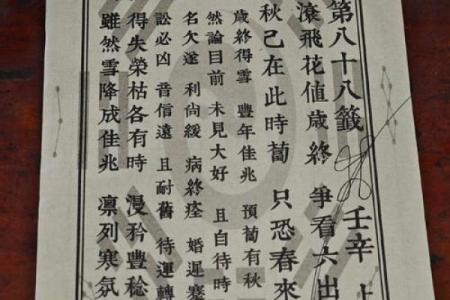 第八十八籤 壬辛 上
滾飛花値歲終 爭看六出
秋己在此時蔔 只恐春來
歲終得雪 豐年佳兆 預蔔有秋
然論目前 未見大好 且自待時
名欠遂 利尚緩 病終痊 婚遲蹇
訟必凶 音信遠 且耐舊 待運轉
得失榮枯各有時 漫矜豐稔
雖然雪降成佳兆 凛列寒氛